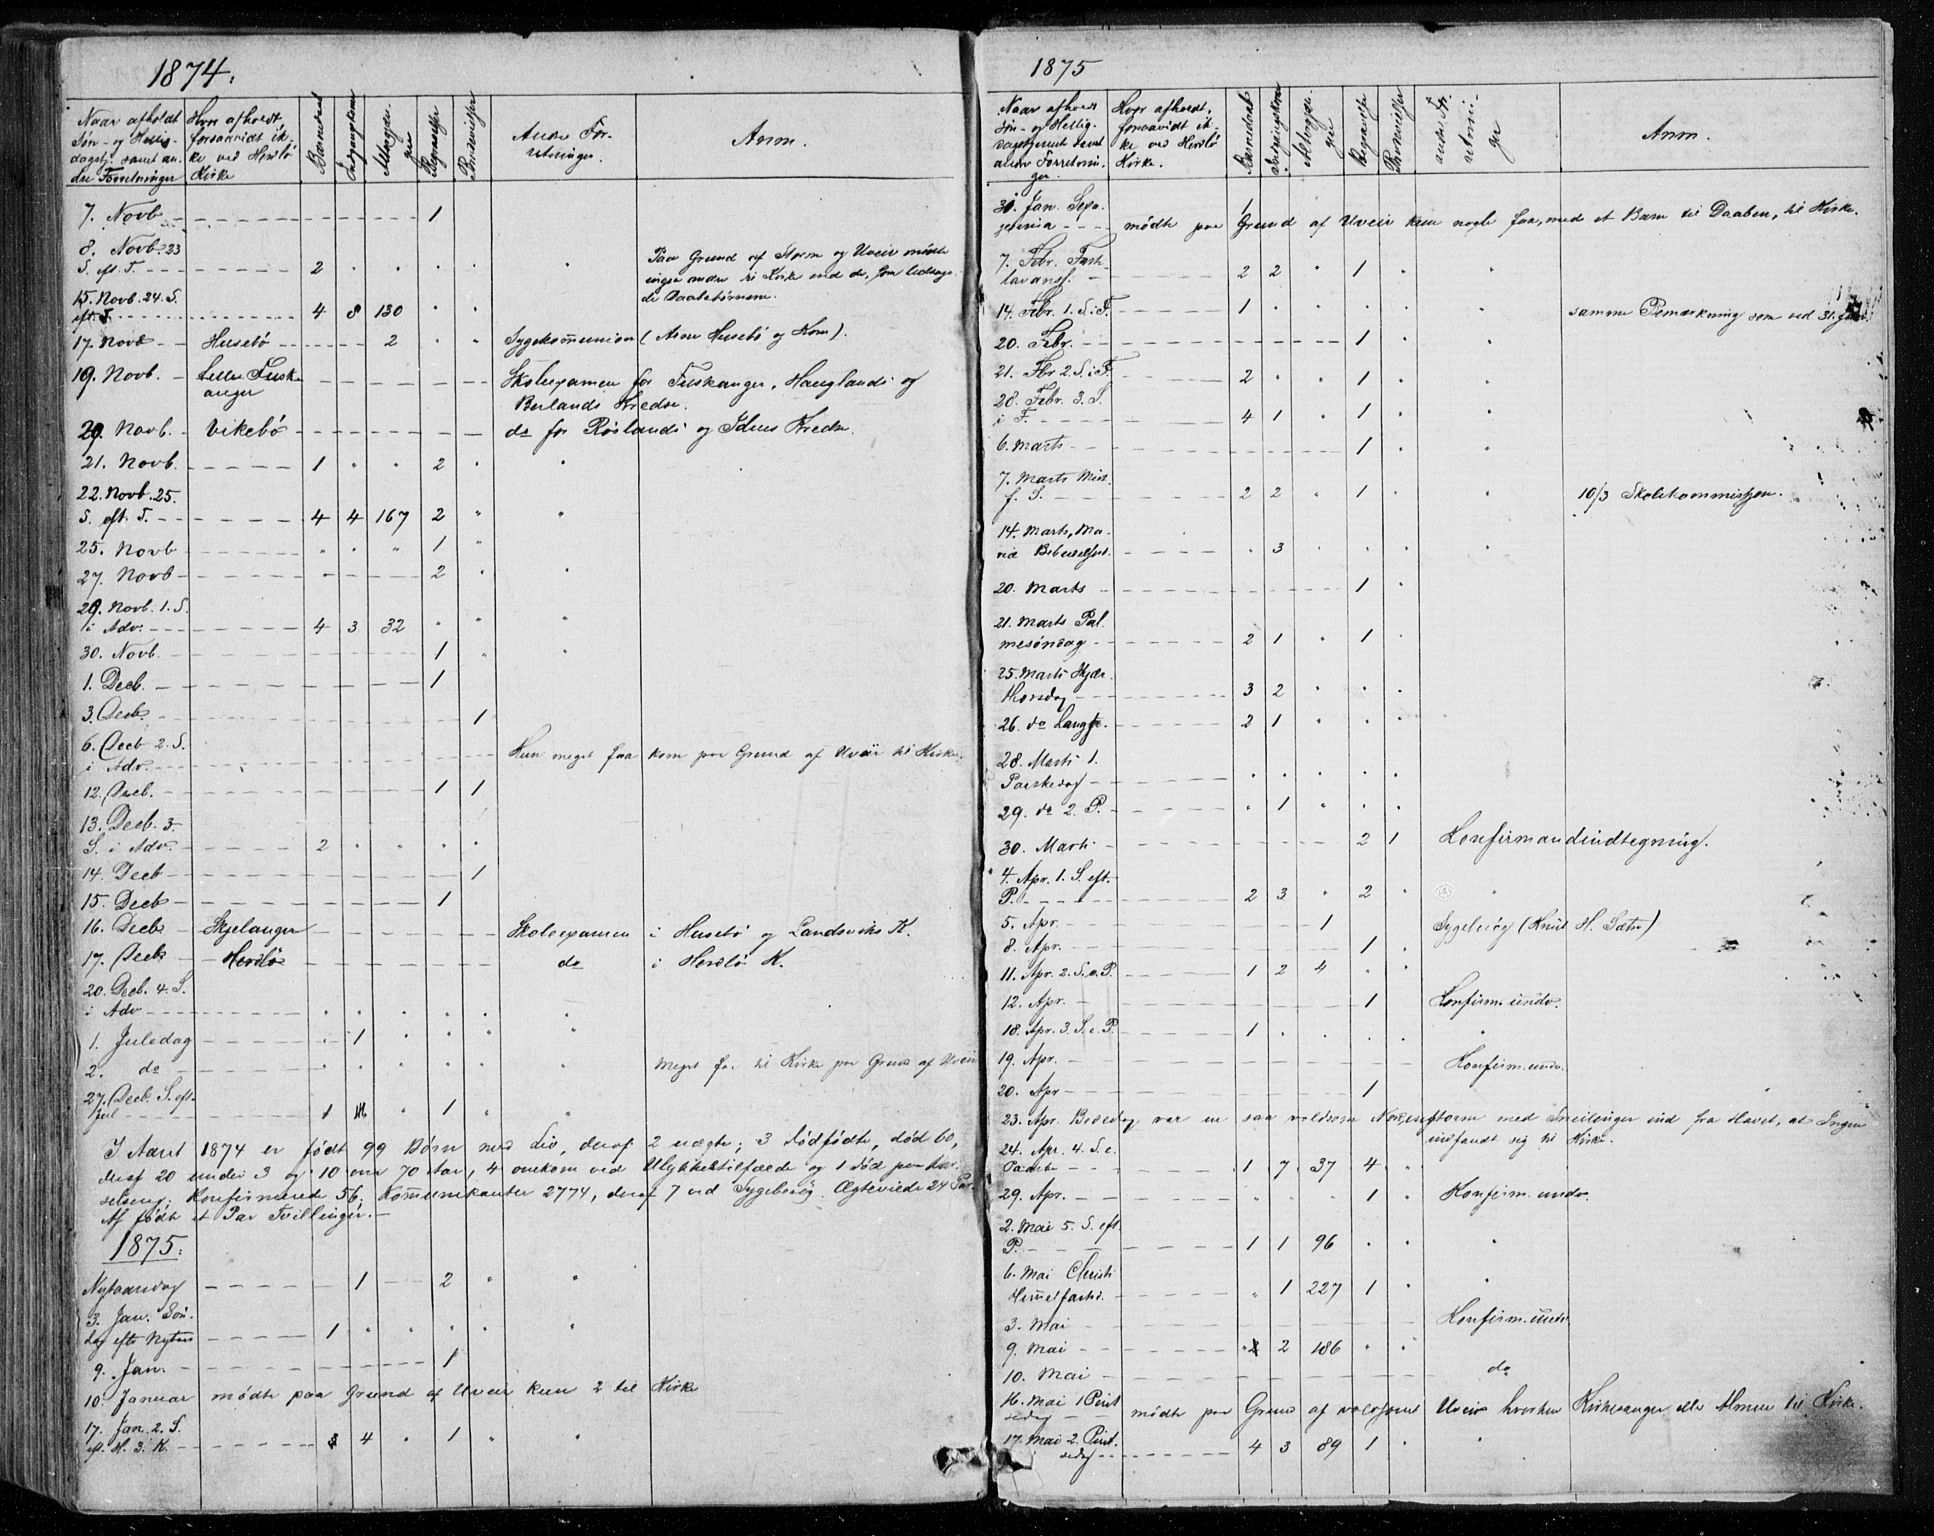 1874.
Naar afholdt Søn- og Hellig- dagstj. samt an- dre Forretninger | Hvor afholdt, forsaavidt ik- ke ved Herdlø Kirke | Barnedaab | Indgangskone | Altergjæn- ger | Begravelse | Brudevielse | Andre For- retninger. | Anm.
7. Novb - - - - - - 1
8. Novb. 23
S. eft. T. - - - 2 " " " " " Paa Grund af Storm og Uveir mødte
ingen andre til Kirke end de, som ledsage-
de Daabsbørnene.
15. Novb. 24. S.
eft. T. - - - 4 8 130 " "
17. Novb - Husebø - - - - 2 " " Sygekommunion (Arne Husebø og Kone).
19. Novb. - Lille Fuskanger - - - - - Skoleexamen for Fuskanger, Hauglands og
Berlands Kredse.
20. Novb. - Vikebø - - - - - - do for Røslands og Idnes Kredse.
21. Novb. - - - 1 " " 2 " "
22. Novb. 25.
S. eft. T. - - - 4 4 167 2 " "
25. Novb - - - " " " 1 "
27. Novb - - - - - - 2 " "
29. Novb. 1. S.
i Adv. - - - 4 3 32 " " "
30. Novb. - - - - - 1 " "
1. Decb. - - - - - 1
3. Decb. - - - - - - 1
6. Decb 2. S.
i Adv. - - - - - - Kun meget faa kom paa Grund af Uveir til Kirke.
12. Decb. - - - - - 1 1
13. Decb. 3.
S. i Adv. - - - 2 " " " "
14. Decb - - - - - - 1
15. Decb - - - - - 1
16. Decb - Skjelanger - - - - - Skoleexamen i Husebø og Landsviks K.
17. Decb - Herdlø - - - - - do i Herdlø K.
20. Decb. 4. S.
i Adv - - - " " " " " "
1. Juledag - - - " 1 " " " "
2. do - - - " " " " " " Meget faa til Kirke paa Grund af Uveir
27. Decb. S. eft.
Jul - - - 1 " 1 " "
I Aaret 1874 er født 99 Børn med Liv, deraf 2 uægte; 3 dødfødte, død 60,
deraf 20 under 3 og 10 over 70 Aar, 4 omkom ved Ulykkestilfælde og 1 død paa Bar-
selseng. Konfirmerede 56. Kommunikanter 2774, deraf 7 ved Sygebesøg. Ægteviede 24 Par.
Af fødte et Par Tvillinger. -
1875.
Nytaarsdag - - - - 1 - 2 " "
3. Jan. Søn-
dag efter Nytaar - - - 1 " " " " "
9. Jan. - - - - - 1
10. Januar mødte paa Grund af Uveir kun 2 til Kirke
17. Jan. 2. S.
ef. H. 3. K. - - - 4 " 1 " "
1875
Naar afholdt Søn- og Hellig- dagstjenest samt andre Forretnin- ger | Hvor afholdt, forsaavidt ik- ke ved Herdlø Kirke. | Barnedaab | Indgangskone | Altergjæn- ger | Begravelse | Brudevielse | andre For- retnin- ger | Anm.
31. Jan. Sep- 1
gesima - - - mødte paa Grund af Uveir kun nogle faa, med et Barn til Daaben, til Kirke.
7. Febr. Fast-
lavens. - - - 2 2 " 1 " "
14. Febr. 1. S. i F. - - 1 " " " " " samme Bemærkning som ved 31. Jan.
20. Febr. - - - - - - 1 "
21. Fbr 2. S. i F. - - 2 " " 1 " "
28. Febr. 3. S.
i F. - - - 4 1 " 1 " "
6. Marts - - - - - - 1 " "
7. Marts Midt
f. S. - - - 2 2 " 1 " " 10/3 Skolekommission.
14. Marts, Ma-
riæ Bebudelsesd. - - - " 3 " " " "
20. Marts - - - - - - 1 "
21. Marts Pal-
mesøndag - - - 2 1 " 1 "
25. Marts Skjær-
thorsdag - - - 3 2 " " "
26. do Langfr. - - - 2 1 " " "
28. Marts 1.
Paaskedag - - - " " " " "
29. do 2. P. - - - " 1 " " "
30. Marts - - - - - 2 1 Konfirmandindtegning.
4. Apr. 1. S. eft.
P. - - - 2 3 " 2 " "
5. Apr. - - - - - 1 Sygebesøg (Knut H. Sætr)
8. Apr. - - - - - 1 "
11. Apr. 2. S. e. P. - - 1 2 4 " "
12. Apr. - - - - - 1 Konfirm. undv.
18. Apr. 3. S. e. P. - - 1 " " " " "
19. Apr. - - - - - Konfirm. undv.
20. Apr - - - - - 1
23. Apr. Bededag var en saa voldsom Nordenstorm med Sneilinger ind fra Havet, at Ingen
indfandt sig til Kirke.
24. Apr. 4. S. e.
Paaske - - - 1 7 37 4 "
29. Apr. - - - " " " 1 " Konfirm. undv.
2. Mai 5. S. eft
P. - - - 1 1 96 " " "
6. Mai Christi
Himmelfartsd. - - - " 1 227 1 " "
3. Mai - - - - - Konfirm. undv
9. Mai - - - " 2 186 " "
10. Mai - - - - - do
16. Mai 1 Pint
sedag - - - mødte paa Grund af voldsomt Uveir hverken Kirkesanger eller Almue til Kirke.
17. Mai 2. Pint-
sedag - - - 4 3 89 1 " "